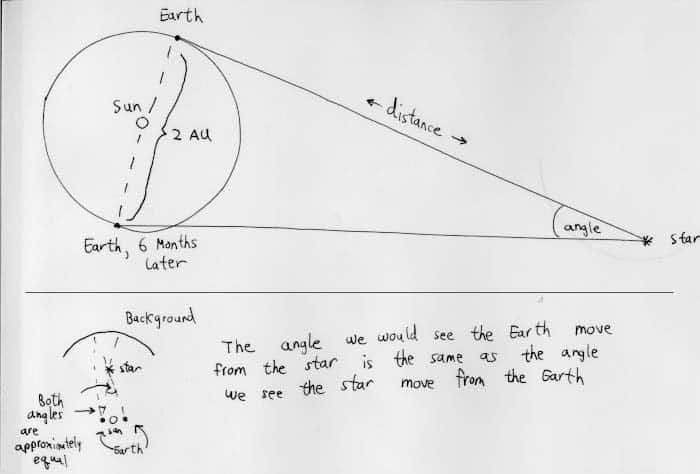 Earth
Sun
2 AU
distance
angle
Star
Earth, 6 Months
Later
Background
star
Both
angles
are
approximately
equal
sun
Earth
The angle we would see the Earth move
from the star is the same as the angle
we see the star move from the Earth